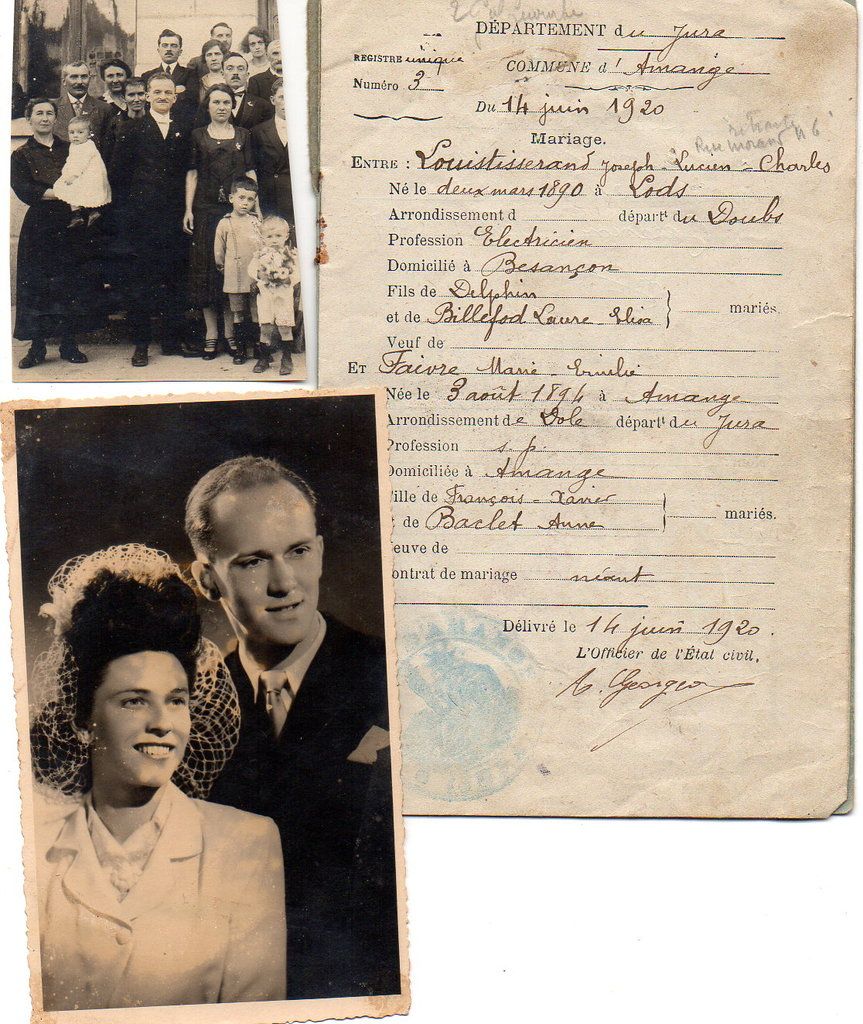 DÉPARTEMENT du Jura
REGISTRE unique
COMMUNE d' Amange
Numéro 3
Du 14 juin 1920
Mariage.
ENTRE : Louistisserand Joseph - Lucien - Charles
Né le deux mars 1890 à Lods
Arrondissement d départ^t du Doubs
Profession Electricien
Domicilié à Besançon
Fils de Delphin
et de Billefod Laure - Elisa mariés.
Veuf de
ET Faivre Marie - Emilie
Née le 3 août 1894 à Amange
Arrondissement de Dole départ^t du Jura
Profession s. p.
Domiciliée à Amange
ille de François - Xavier
de Baclet Anne mariés.
euve de
ontrat de mariage néant
Délivré le 14 juin 1920.
L'Officier de l'État civil,